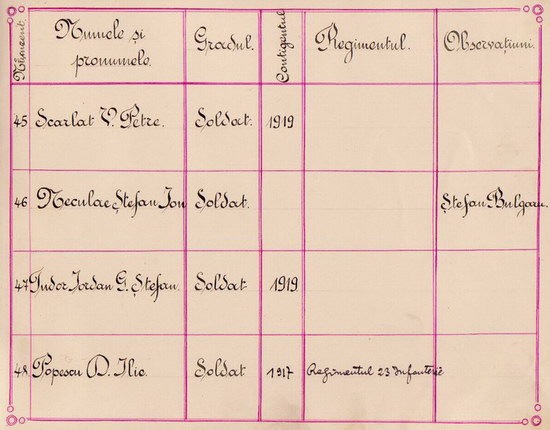 Nr.curent.
Numele și
pronumele.
Gradul.
Contigentul
Regimentul.
Observațiuni.
45 Scarlat V. Petre. Soldat. 1919
46 Neculae Ștefan Ion Soldat. Ștefan Bulgaru.
47 Tudor Iordan G. Ștefan. Soldat 1919
48 Popescu D. Ilie. Soldat 1917 Regimentul 23 Infanterie